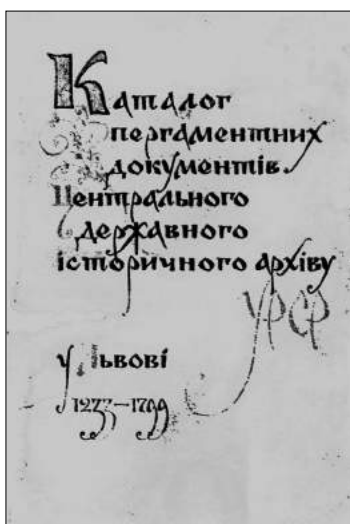 Каталог
пергаментних
документів
Центрального
державного
історичного архіву
УРСР
у Львові
1233—1799